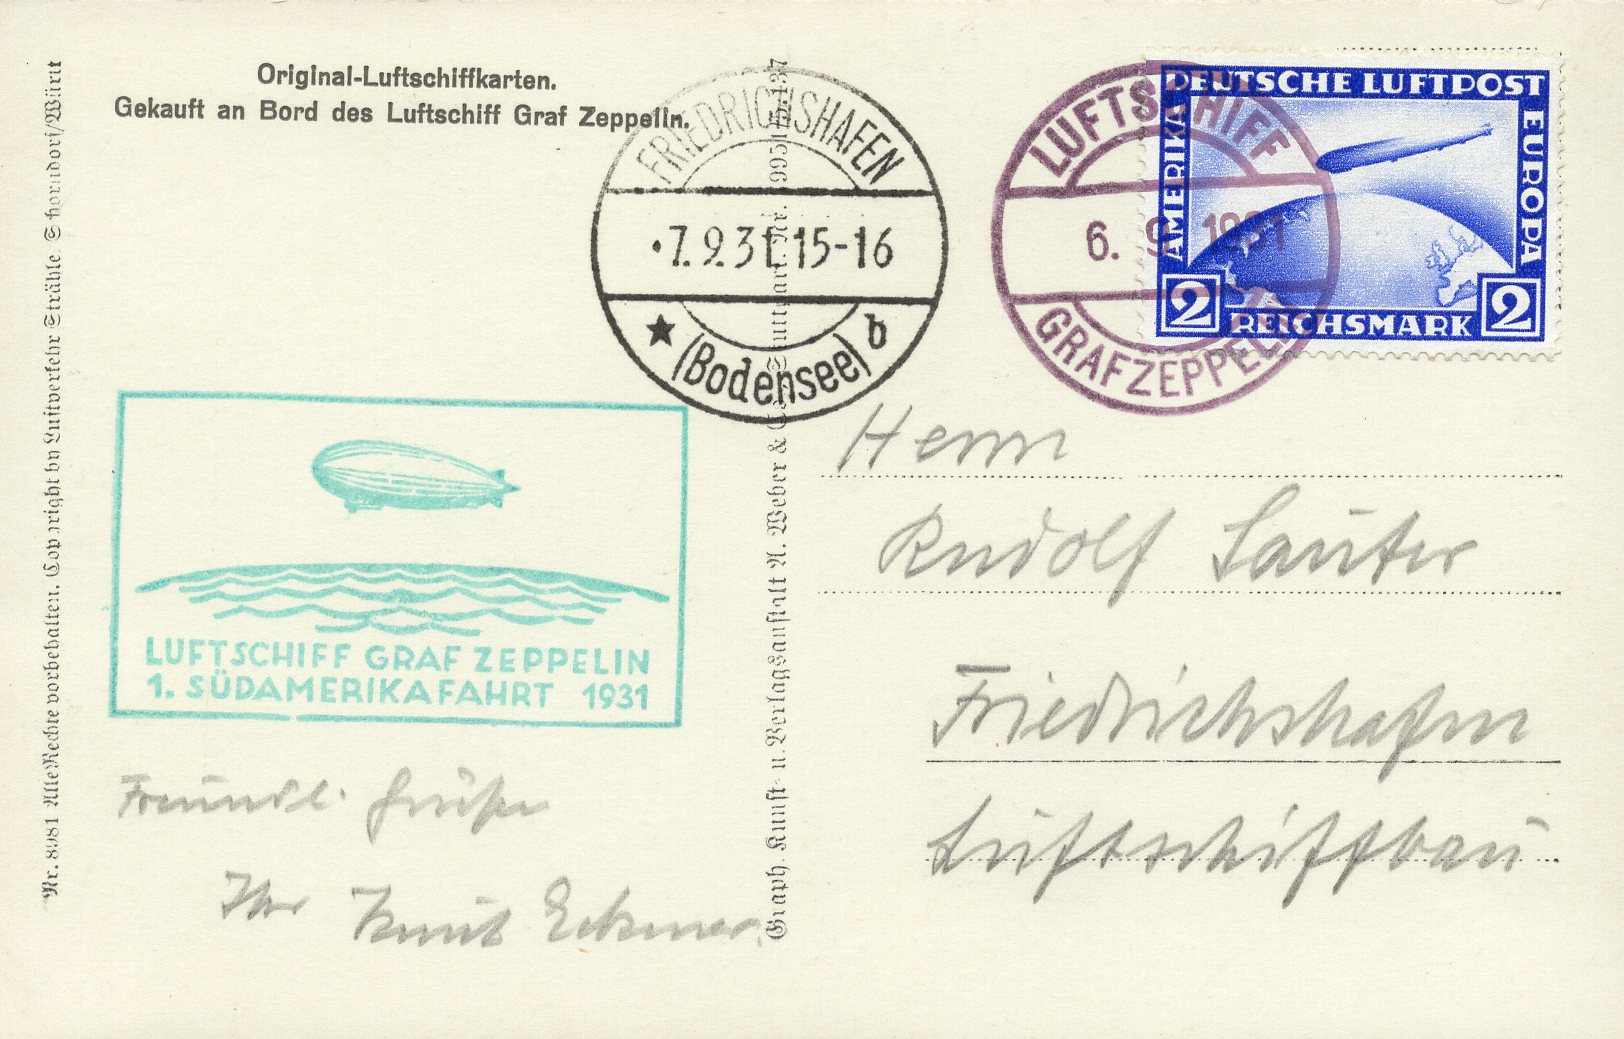 Original-Luftschiffkarten.
Gekauft an Bord des Luftschiff Graf Zeppelin.
FRIEDRICHSHAFEN
7.9.31.15-16
(Bodensee) b
LUFTSCHIFF
6. 9. 1931
GRAF ZEPPELIN
DEUTSCHE LUFTPOST
AMERIKA
EUROPA
2 REICHSMARK 2
LUFTSCHIFF GRAF ZEPPELIN
1. SÜDAMERIKAFAHRT 1931
Freundl. Grüße
Ihr Knut Eckener.
Herrn
Rudolf Sauter
Friedrichshafen
Luftschiffbau
Nr. 8981 Alle Rechte vorbehalten. Copyright by Luftverkehr Strähle Schorndorf/Württ
Graph. Kunst- u. Verlagsanstalt A. Weber & Co., Stuttgart. Nr. 9951